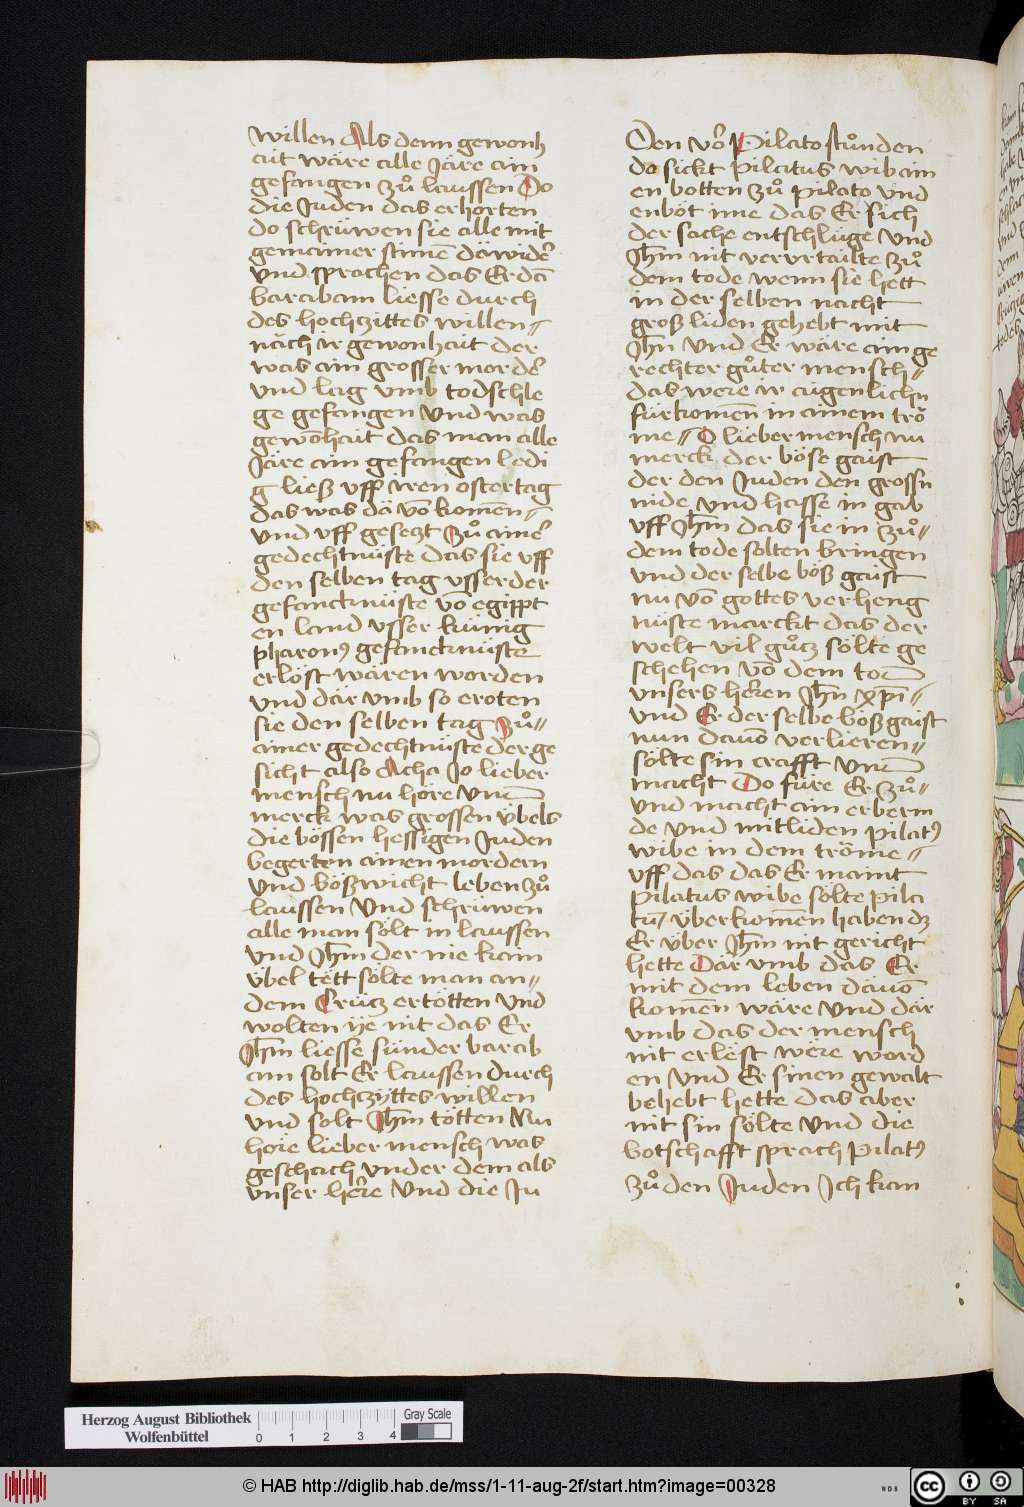 willen Als denn gewonh
ait wäre alle Järe ain
gefangen zů laussen Do
die Juden das erhorten
do schrüwen sie alle mit
gemainer stimē däwidē
vnd sprachen das Er dā
barabam liesse durch
des hochzittes willen=
näch ir gewonhait der
was ain grosser mordē
vnd lag vmb todschle
ge gefangen vnd was
gewōhait das man alle
Järe ain gefangen ledi
g ließ vff iren ostertag
das was dä vō komen=
vnd vff gesetzt zů ainē
gedechtnüste das sie vff
den selben tag vsser der
gefancknüste vō egippt
en land vsser künig
pharonꝰ gefancknüste
erlöst wären worden
vnd där vmb so eroten
sie den selben tag zů=
ainer gedechtnüste der ge
sicht also Acha Jo lieber
mensch nu höre vnd
merck was grossen übels
die bössen hessigen Juden
begerten ainen mordern
vnd bößwicht leben zů
laussen vnd schrüwen
alle man sölt in laussen
vnd Jhm der nie kain
übel tett sölte man an=
dem Crütz ertötten vnd
wolten ye nit das Er
Jhm liesse sünder barab
am solt Er laussen durch
des hochzyttes willen
vnd solt Jhm tötten Nu
höre lieber mensch was
geschach vnder dem als
vnser herre vnd die Ju
Den vor Pilato stůnden
do sickt Pilatus wib ain
en botten zů pilato vnd
enböt ime das Er sich
der sache entschlüge vnd
Jhm nit vervrtailte zů
dem tode wenn sie hett
in der selben nacht
groß liden gehebt mit
Jhn vnd Er wäre ain ge
rechter gůter mensch=
das were ir augenlichn
fürkomen in ainem trö
me= O lieber mensch nu
merck der böse gaist
der den Juden den grossn
nide vnd hasse in gab
vff Jhm das sie in zů=
dem tode solten bringen
vnd der selbe böß gaist
nu vō gottes verheng
nüste marckt das der
welt vil gůtz sölte ge
schehen vō dem tod
vnsers herren Jhn xpi=
vnd Er der selbe böß gaist
nun dauō verlieren=
sölte sin crafft vnd
macht Do füre Er zů=
vnd macht ain erberm
de vnd mitliden pilatꝰ
wibe in dem tröme=
vff das das Er maint
Pilatus wibe sölte pila
tū überkomen haben dz
Er über Jhm nit gericht
hette Där vmb das Er
mit dem leben däuō
komen wäre vnd där
vmb das der mensch
nit erlöst wëre word
en vnd Er sinen gewalt
behebt hette das aber
nit sin sölte vnd die
botschafft sprach pilatꝰ
zů den Juden Ich kan
Herzog August Bibliothek
Wolfenbüttel
0 1 2 3 4
Gray Scale
© HAB http://diglib.hab.de/mss/1-11-aug-2f/start.htm?image=00328
WDB
cc BY SA